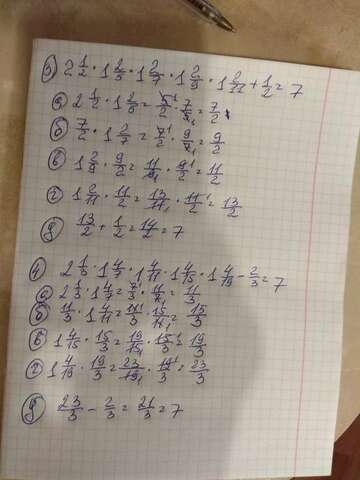 3) 2 1/2 · 1 2/5 · 1 2/7 · 1 2/9 · 1 2/11 + 1/2 = 7
а) 2 1/2 · 1 2/5 = 5/2 · 7/5 = 7/2
б) 7/2 · 1 2/7 = 7/2 · 9/7 = 9/2
в) 1 2/9 · 9/2 = 11/9 · 9/2 = 11/2
г) 1 2/11 · 11/2 = 13/11 · 11/2 = 13/2
д) 13/2 + 1/2 = 14/2 = 7
4) 2 1/3 · 1 4/7 · 1 4/11 · 1 4/15 · 1 4/19 - 2/3 = 7
а) 2 1/3 · 1 4/7 = 7/3 · 11/7 = 11/3
б) 11/3 · 1 4/11 = 11/3 · 15/11 = 15/3
в) 1 4/15 · 15/3 = 19/15 · 15/3 = 19/3
г) 1 4/19 · 19/3 = 23/19 · 19/3 = 23/3
д) 23/3 - 2/3 = 21/3 = 7